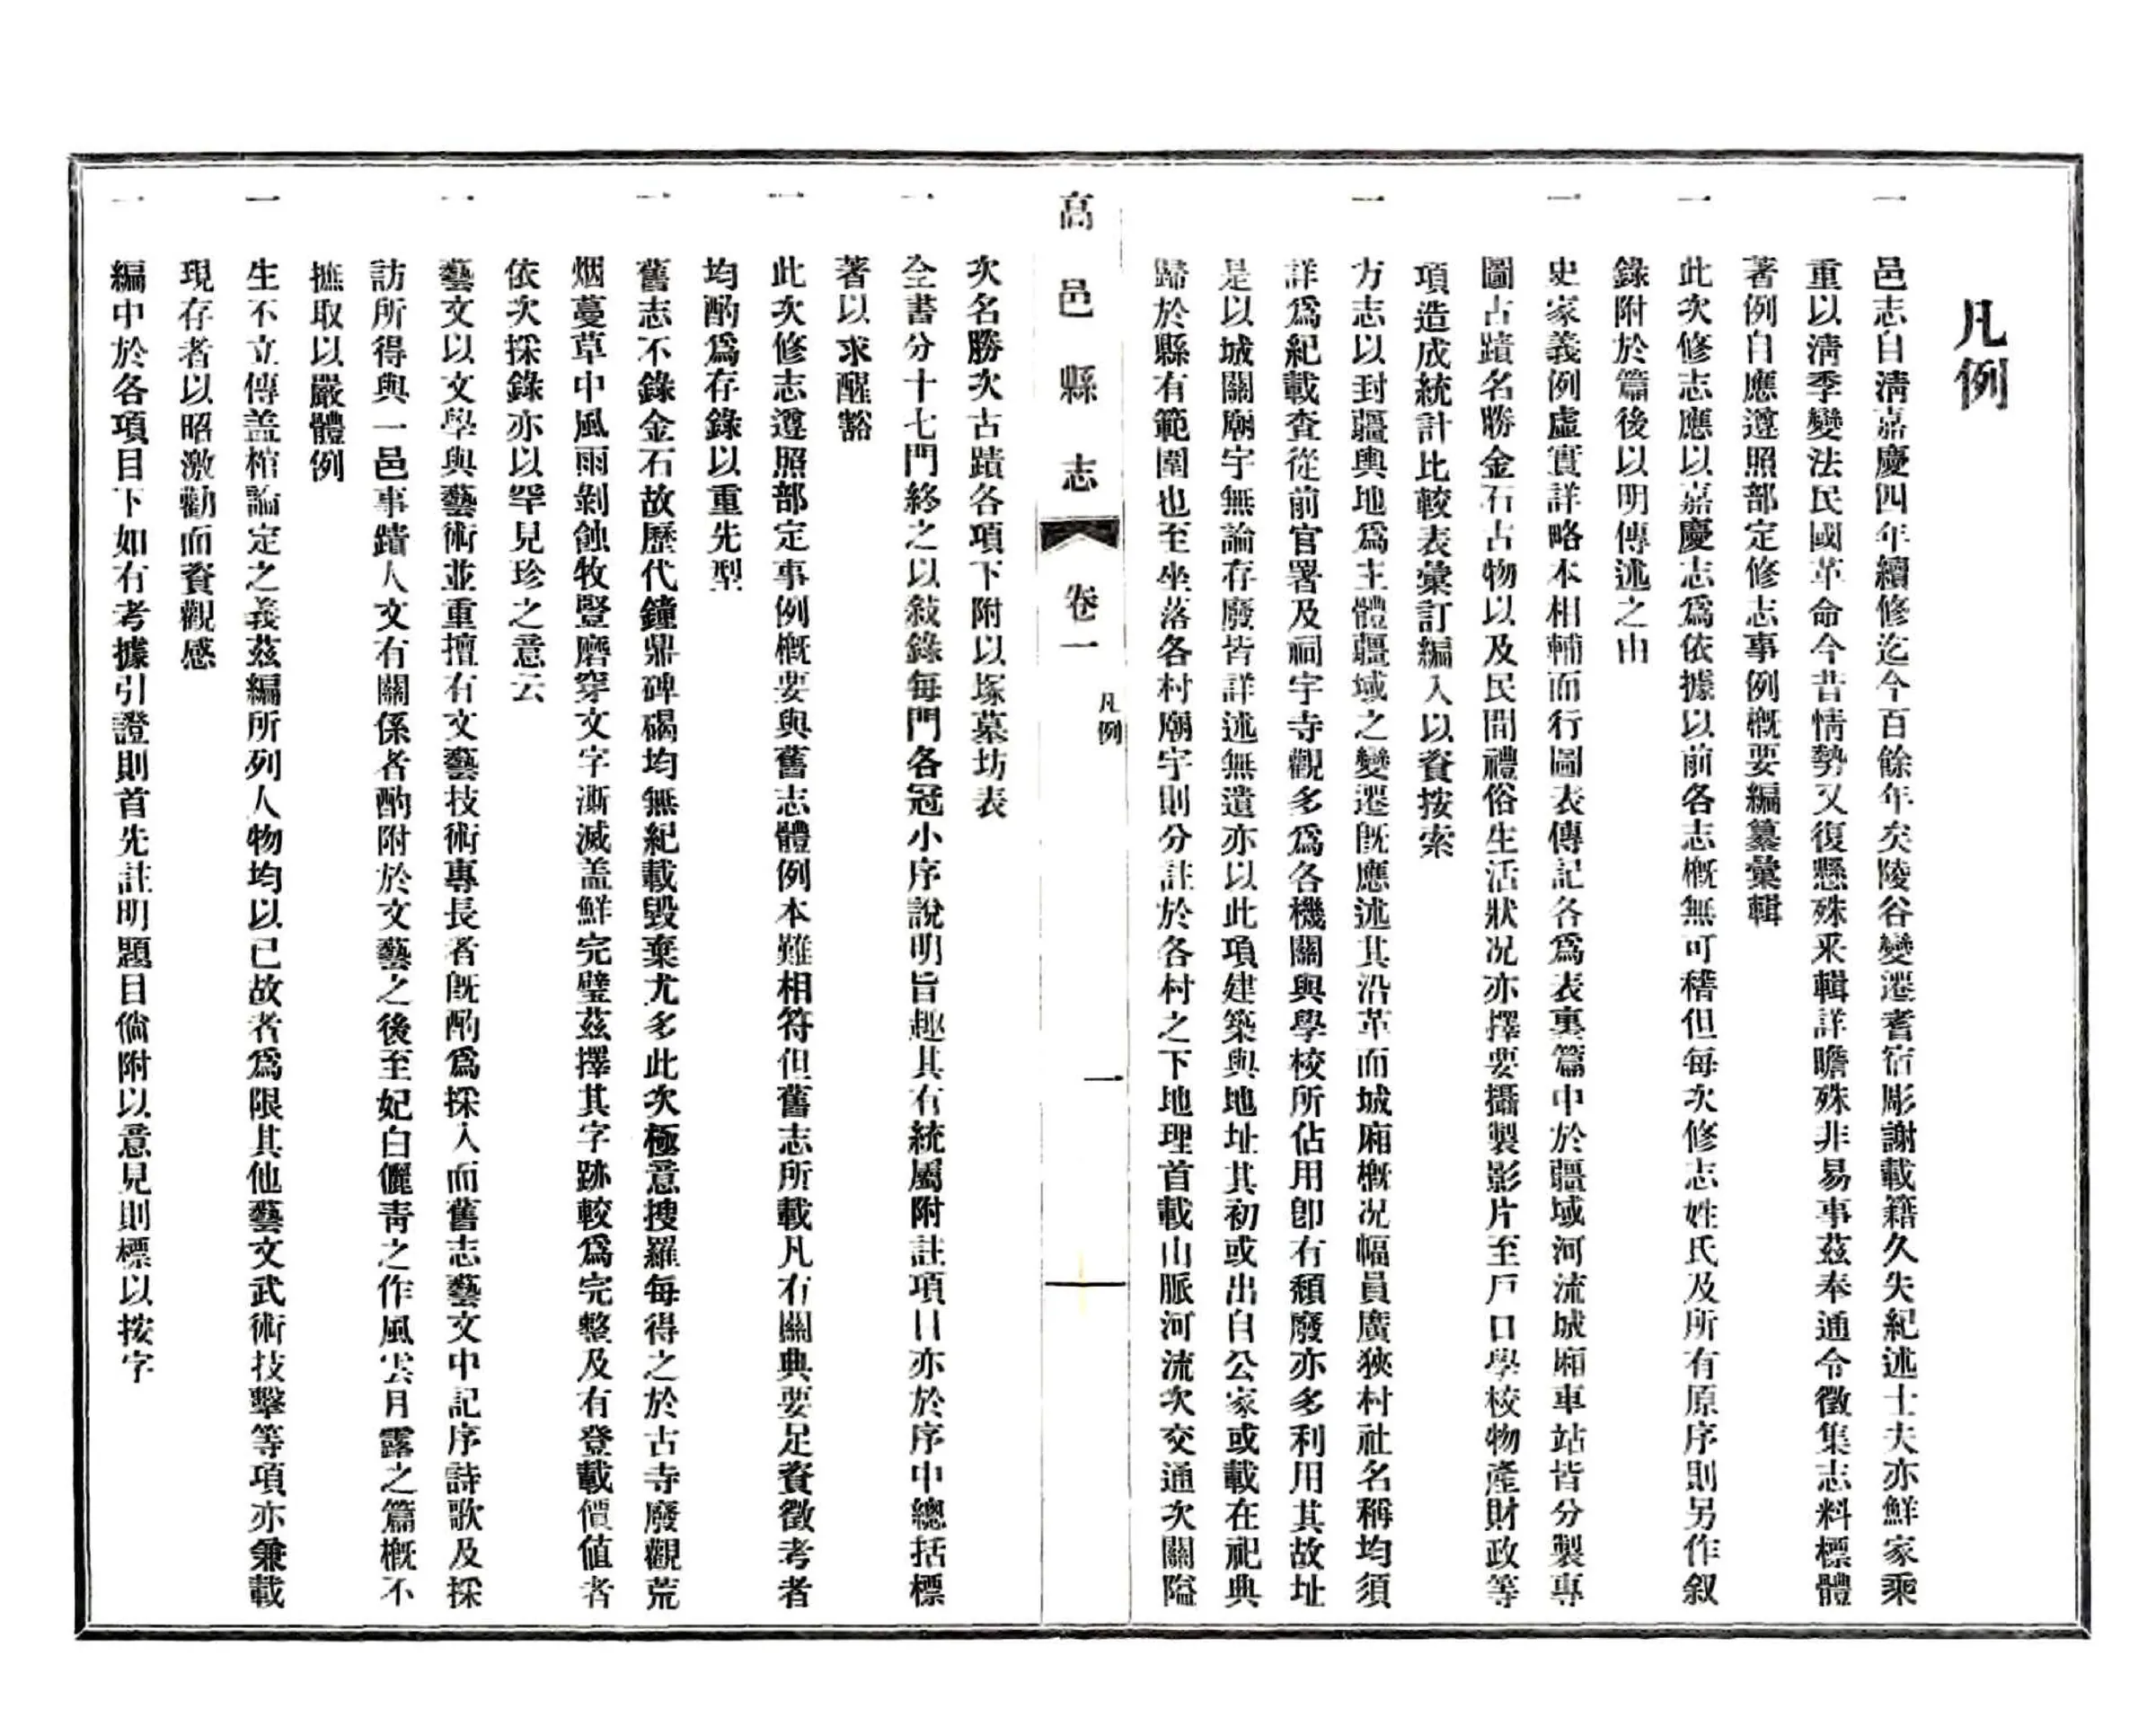 凡例
一 邑志自淸嘉慶四年續修迄今百餘年矣陵谷變遷耆宿彫謝載籍久失紀述士夫亦鮮家乘
重以淸季變法民國革命今昔情勢又復懸殊釆輯詳瞻殊非易事茲奉通令徵集志料標體
著例自應遵照部定修志事例概要編纂彙輯
一 此次修志應以嘉慶志爲依據以前各志概無可稽但每次修志姓氏及所有原序則另作叙
錄附於篇後以明傳述之由
一 史家義例虛實詳略本相輔而行圖表傳記各爲表裏篇中於疆域河流城廂車站皆分製專
圖古蹟名勝金石古物以及民間禮俗生活狀况亦擇要攝製影片至戶口學校物產財政等
項造成統計比較表彙訂編入以資按索
一 方志以封疆輿地爲主體疆域之變遷旣應述其沿革而城廂概况幅員廣狹村社名稱均須
詳爲紀載查從前官署及祠宇寺觀多爲各機關與學校所佔用卽有頹廢亦多利用其故址
是以城關廟宇無論存廢皆詳述無遺亦以此項建築與地址其初或出自公家或載在祀典
歸於縣有範圍也至坐落各村廟宇則分註於各村之下地理首載山脈河流次交通次關隘
高邑縣志 卷一 凡例 一
次名勝次古蹟各項下附以塚墓坊表
一 全書分十七門終之以敍錄每門各冠小序說明旨趣其有統屬附註項目亦於序中總括標
著以求醒豁
一 此次修志遵照部定事例概要與舊志體例本難相符但舊志所載凡有關典要足資徵考者
均酌爲存錄以重先型
一 舊志不錄金石故歷代鐘鼎碑碣均無紀載毀棄尤多此次極意搜羅每得之於古寺廢觀荒
烟蔓草中風雨剝蝕牧豎磨穿文字漸滅盖鮮完璧茲擇其字跡較爲完整及有登載價值者
依次採錄亦以罕見珍之意云
一 藝文以文學與藝術並重擅有文藝技術專長者旣酌爲採入而舊志藝文中記序詩歌及採
訪所得與一邑事蹟人文有關係者酌附於文藝之後至妃白儷靑之作風雲月露之篇概不
摭取以嚴體例
一 生不立傳盖棺論定之義茲編所列人物均以已故者爲限其他藝文武術技擊等項亦兼載
現存者以昭激勸而資觀感
一 編中於各項目下如有考據引證則首先註明題目倘附以意見則標以按字